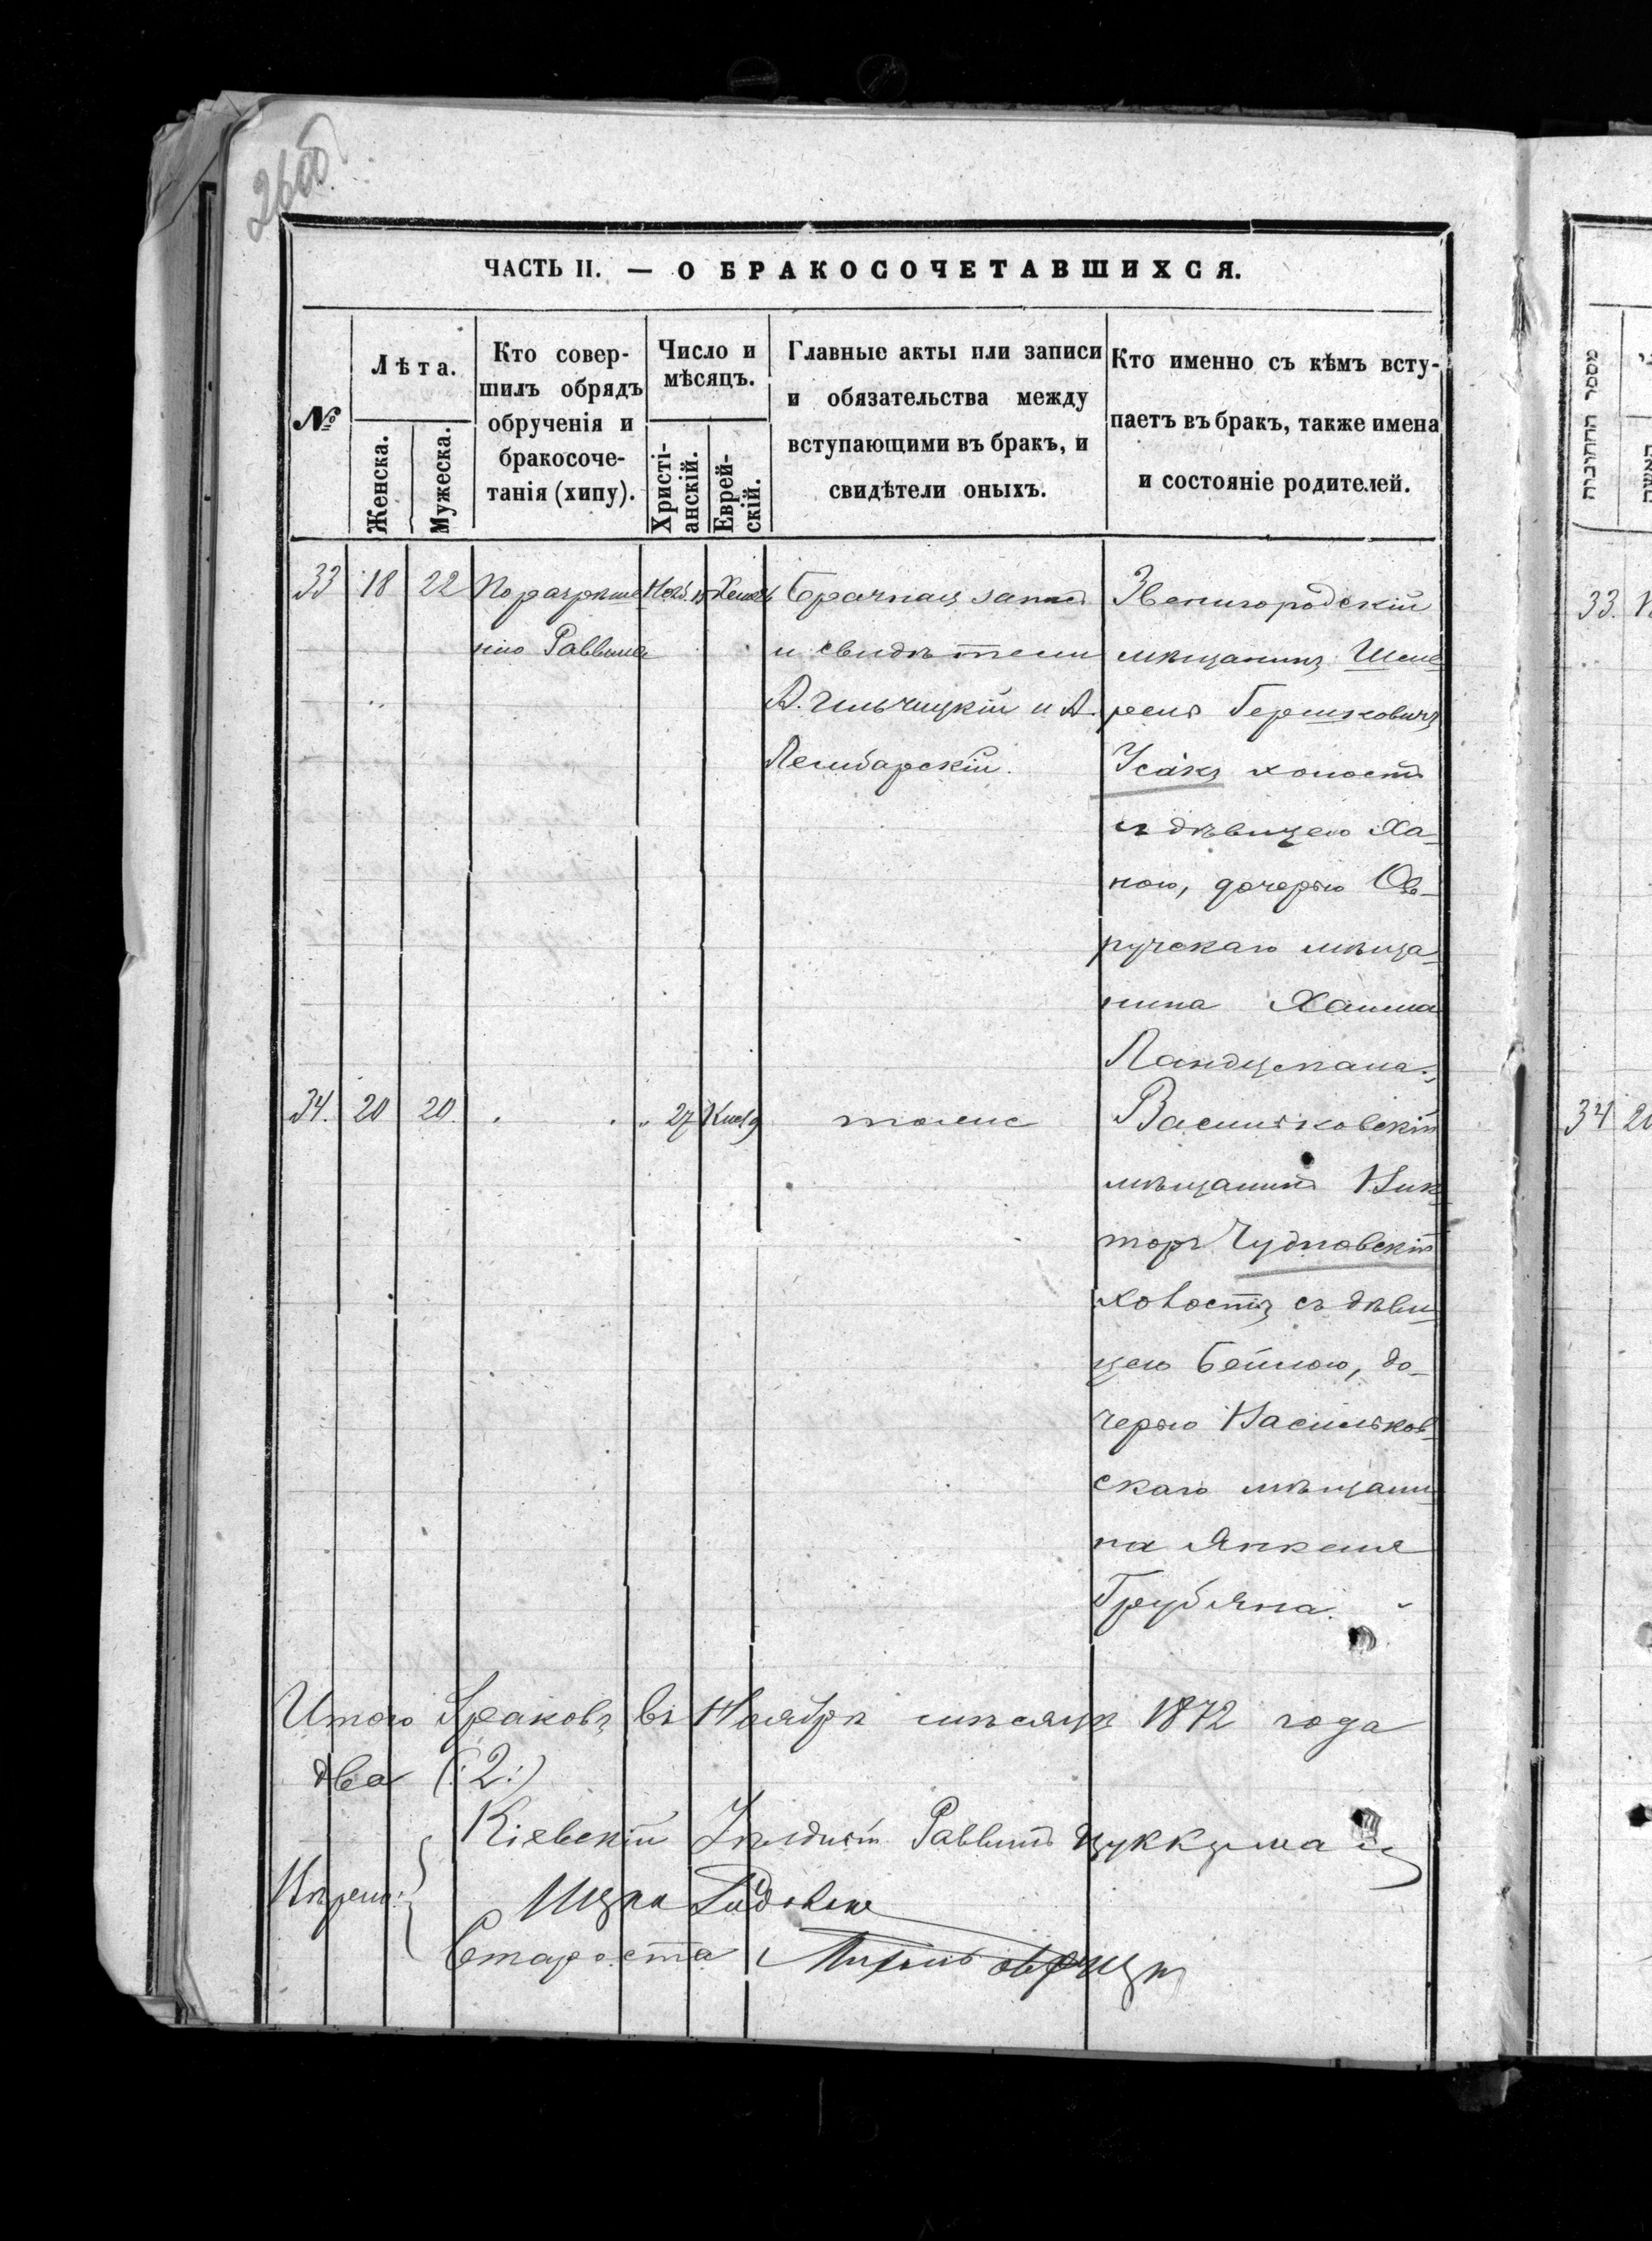 260б
ЧАСТЬ II. — О БРАКОСОЧЕТАВШИХСЯ.
№
Лѣта.
Женска.
Мужеска.
Кто совер-
шилъ обрядъ
обрученія и
бракосоче-
танія (хипу).
Число и
мѣсяцъ.
Христі-
анскій.
Еврей-
скій.
Главные акты или записи
и обязательства между
вступающими въ бракъ, и
свидѣтели оныхъ.
Кто именно съ кѣмъ всту-
паетъ въ бракъ, также имена
и состояніе родителей.
33 18 22 По разрѣше
нію Раввина
Брачная запись
и свидѣтели
А. Ильчицкій и А.
Лембарскій.
Звенигородскій
мѣщанинъ Шме
рель Гершковичъ
Усакъ холостъ
съ дѣвицею Ха-
ною, дочерью Ов-
ручскаго мѣща-
нина Хаима
Ландцмана.
34. 20 20. 27 Кисл 9 тоже
Васильковскій
мѣщанинъ Вик
торъ Чудновскій
холостъ съ дѣви
цею Бейлою, до-
черью Васильков-
скаго мѣщани
на Янкеля
Грубяна.
Итого браковъ въ Ноябрѣ мѣсяцѣ 1872 года
два (:2:)
Кіевскій Уѣздный Раввинъ Цуккерманъ
Староста
מספר החתונות
33.
34 20